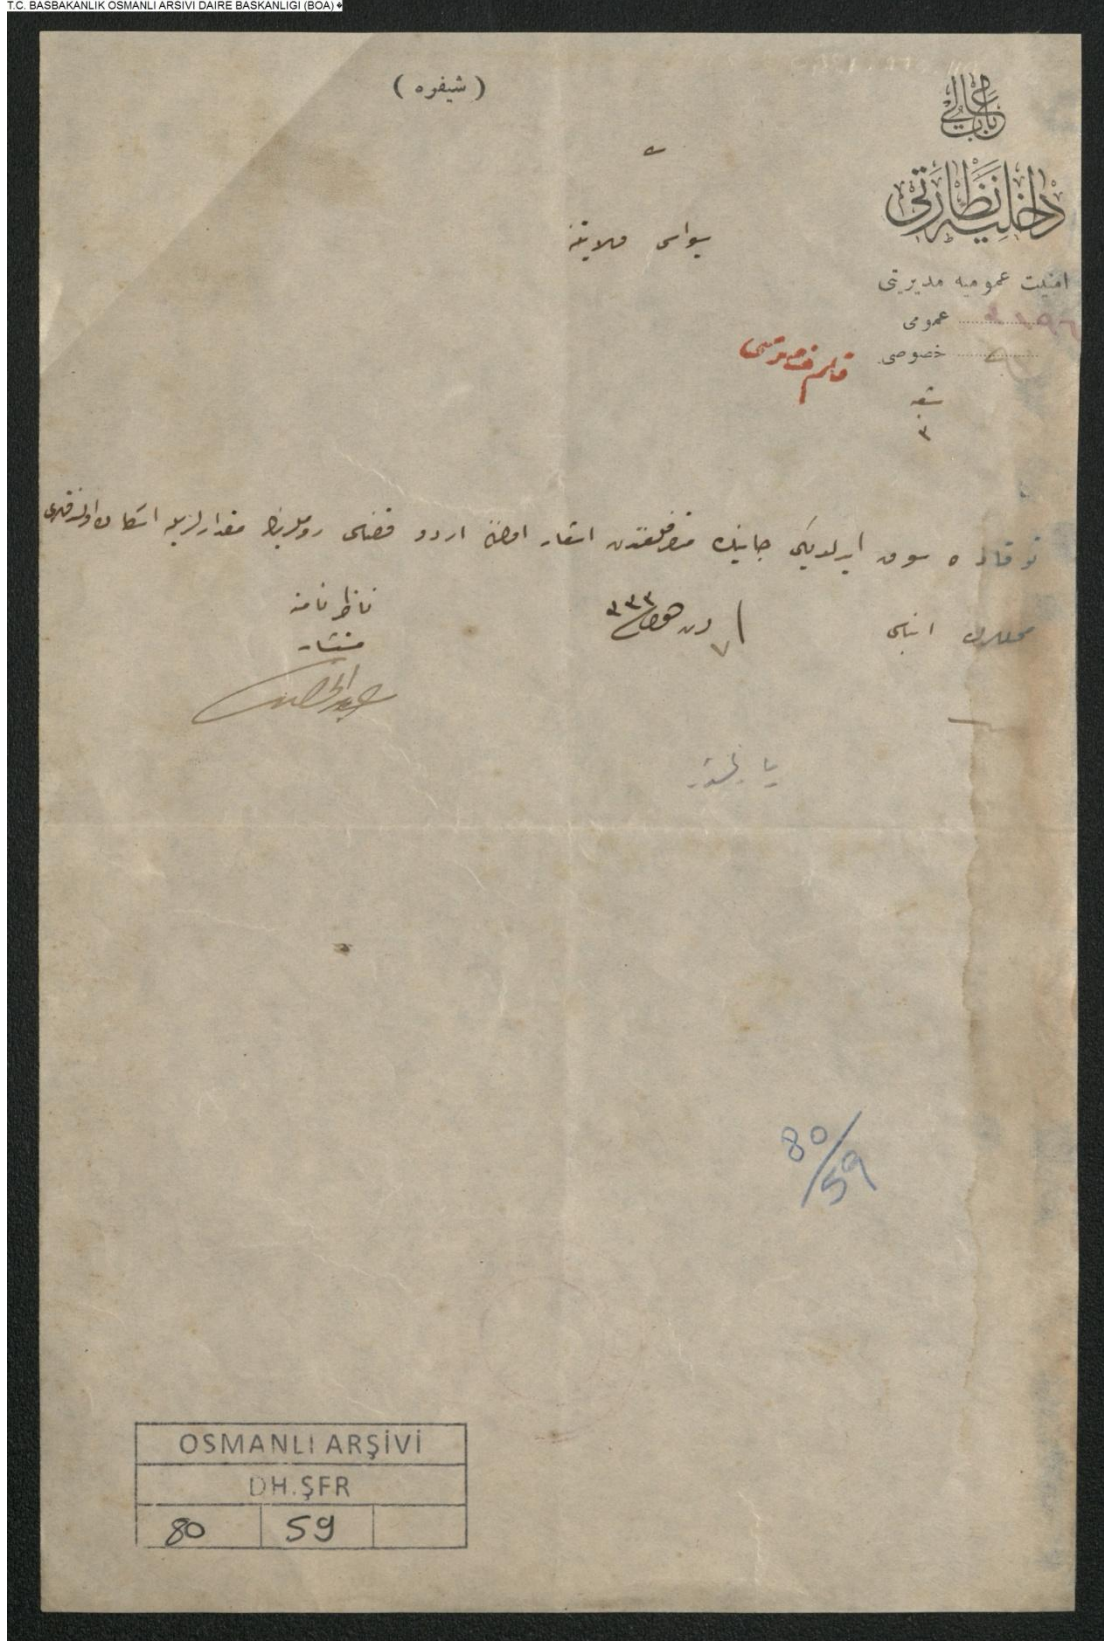 T.C. BASBAKANLIK OSMANLI ARSIVI DAIRE BASKANLIGI (BOA) �
( شيفره )
باب عالی
داخليه نظارتی
امنيت عموميه مديريتی
عمومی
خصوصی
شعبه
٣
سيواس ولايتنه
توقاده سوق ايدلديكی جانيك متصرفلغندن اشعار اردو قضاسی روملرينك مقدارلريله اسكان
محللرك انباسی
٣٣٣
ناظر نامنه
مستشار
يازلمشدر
80/59
OSMANLI ARŞİVİ
DH.ŞFR
80 59